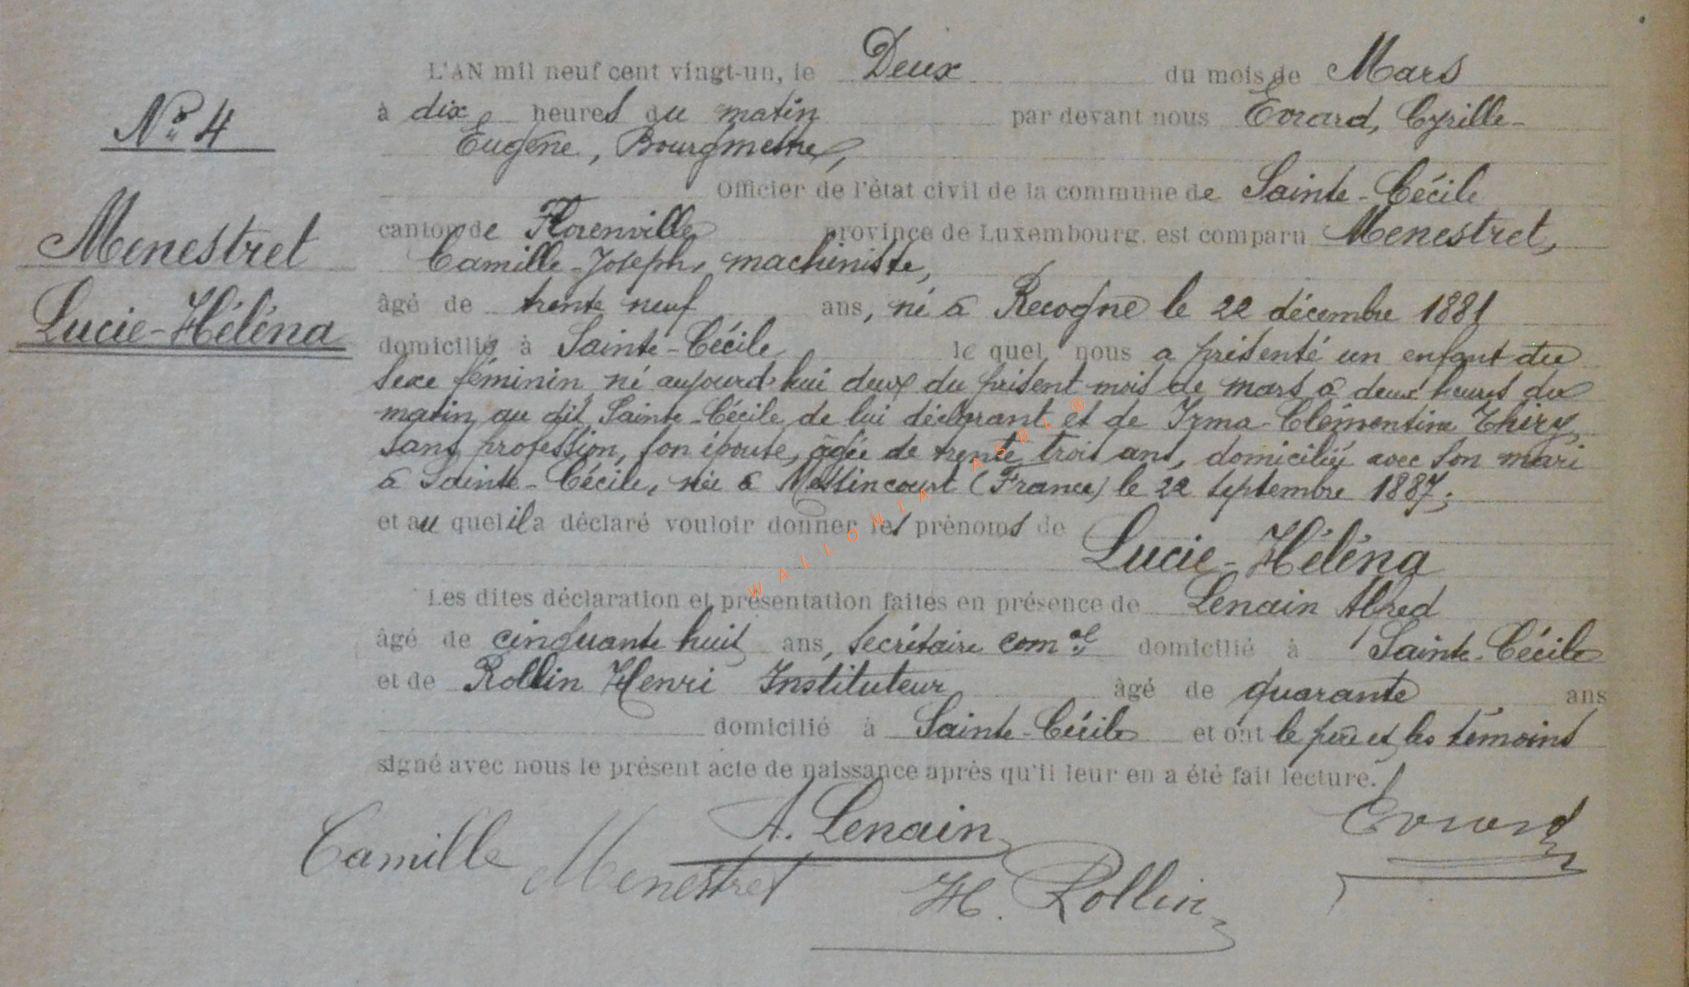 N° 4
Menestret
Lucie-Héléna
L'AN mil neuf cent vingt-un, le Deux du mois de Mars
à dix heures du matin par devant nous Evrard, Cyrille-
Eugène, Bourgmestre,
Officier de l'état civil de la commune de Sainte-Cécile
canton de Florenville province de Luxembourg, est comparu Menestret,
Camille-Joseph, machiniste,
âgé de trente neuf ans, né à Recogne le 22 décembre 1881
domicilié à Sainte-Cécile le quel nous a présenté un enfant du
sexe féminin né aujourd'hui deux du présent mois de mars à deux heures du
matin au dit Sainte-Cécile de lui déclarant et de Irma-Clémentine Thiry,
sans profession, son épouse, âgée de trente trois ans, domiciliée avec son mari
à Sainte-Cécile, née à Messincourt (France) le 22 septembre 1887;
et au quel il a déclaré vouloir donner les prénoms de
Lucie-Héléna
Les dites déclaration et présentation faites en présence de Lenain Alfred
âgé de cinquante huit ans, secrétaire com.al domicilié à Sainte-Cécile
et de Rollin Henri Instituteur âgé de quarante ans
domicilié à Sainte-Cécile et ont le père et les témoins
signé avec nous le présent acte de naissance après qu'il leur en a été fait lecture.
A. Lenain Evrard
Camille Menestret
H. Rollin
WALLONIA ASBL ©